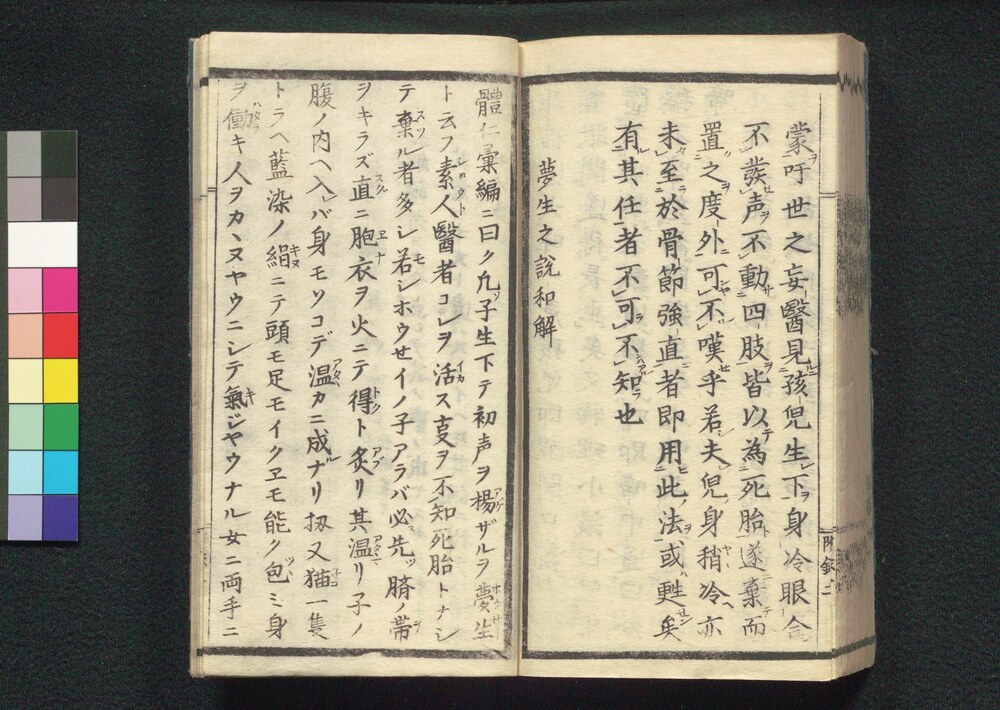 蒙吁世之妄醫見孩児生下身冷眼合
不發声不動四肢皆以為死胎遂棄而
置之度外可不嘆乎若夫児身稍冷亦
未至於骨節強直者即用此法或甦矣
有其任者不可不知也
夢生之説和解
附録二
體仁彙編ニ曰ク凢ソ子生下テ初声ヲ揚ザルヲ夢生
ト云フ素人醫者コレヲ活ス叓ヲ不知死胎トナシ
テ棄ル者多シ若シホウセイノ子アラバ必先ツ臍ノ帯
ヲキラズ直ニ胞衣ヲ火ニテ得ト炙リ其温リ子ノ
腹ノ内ヘ入レバ身モソコデ温カニ成ルナリ扨又猫一隻
トラヘ藍染ノ絹ニテ頭モ足モイクヱモ能ク包ミ身
ヲ働キ人ヲカヽヌヤウニシテ氣ジヤウナル女ニ両手ニ